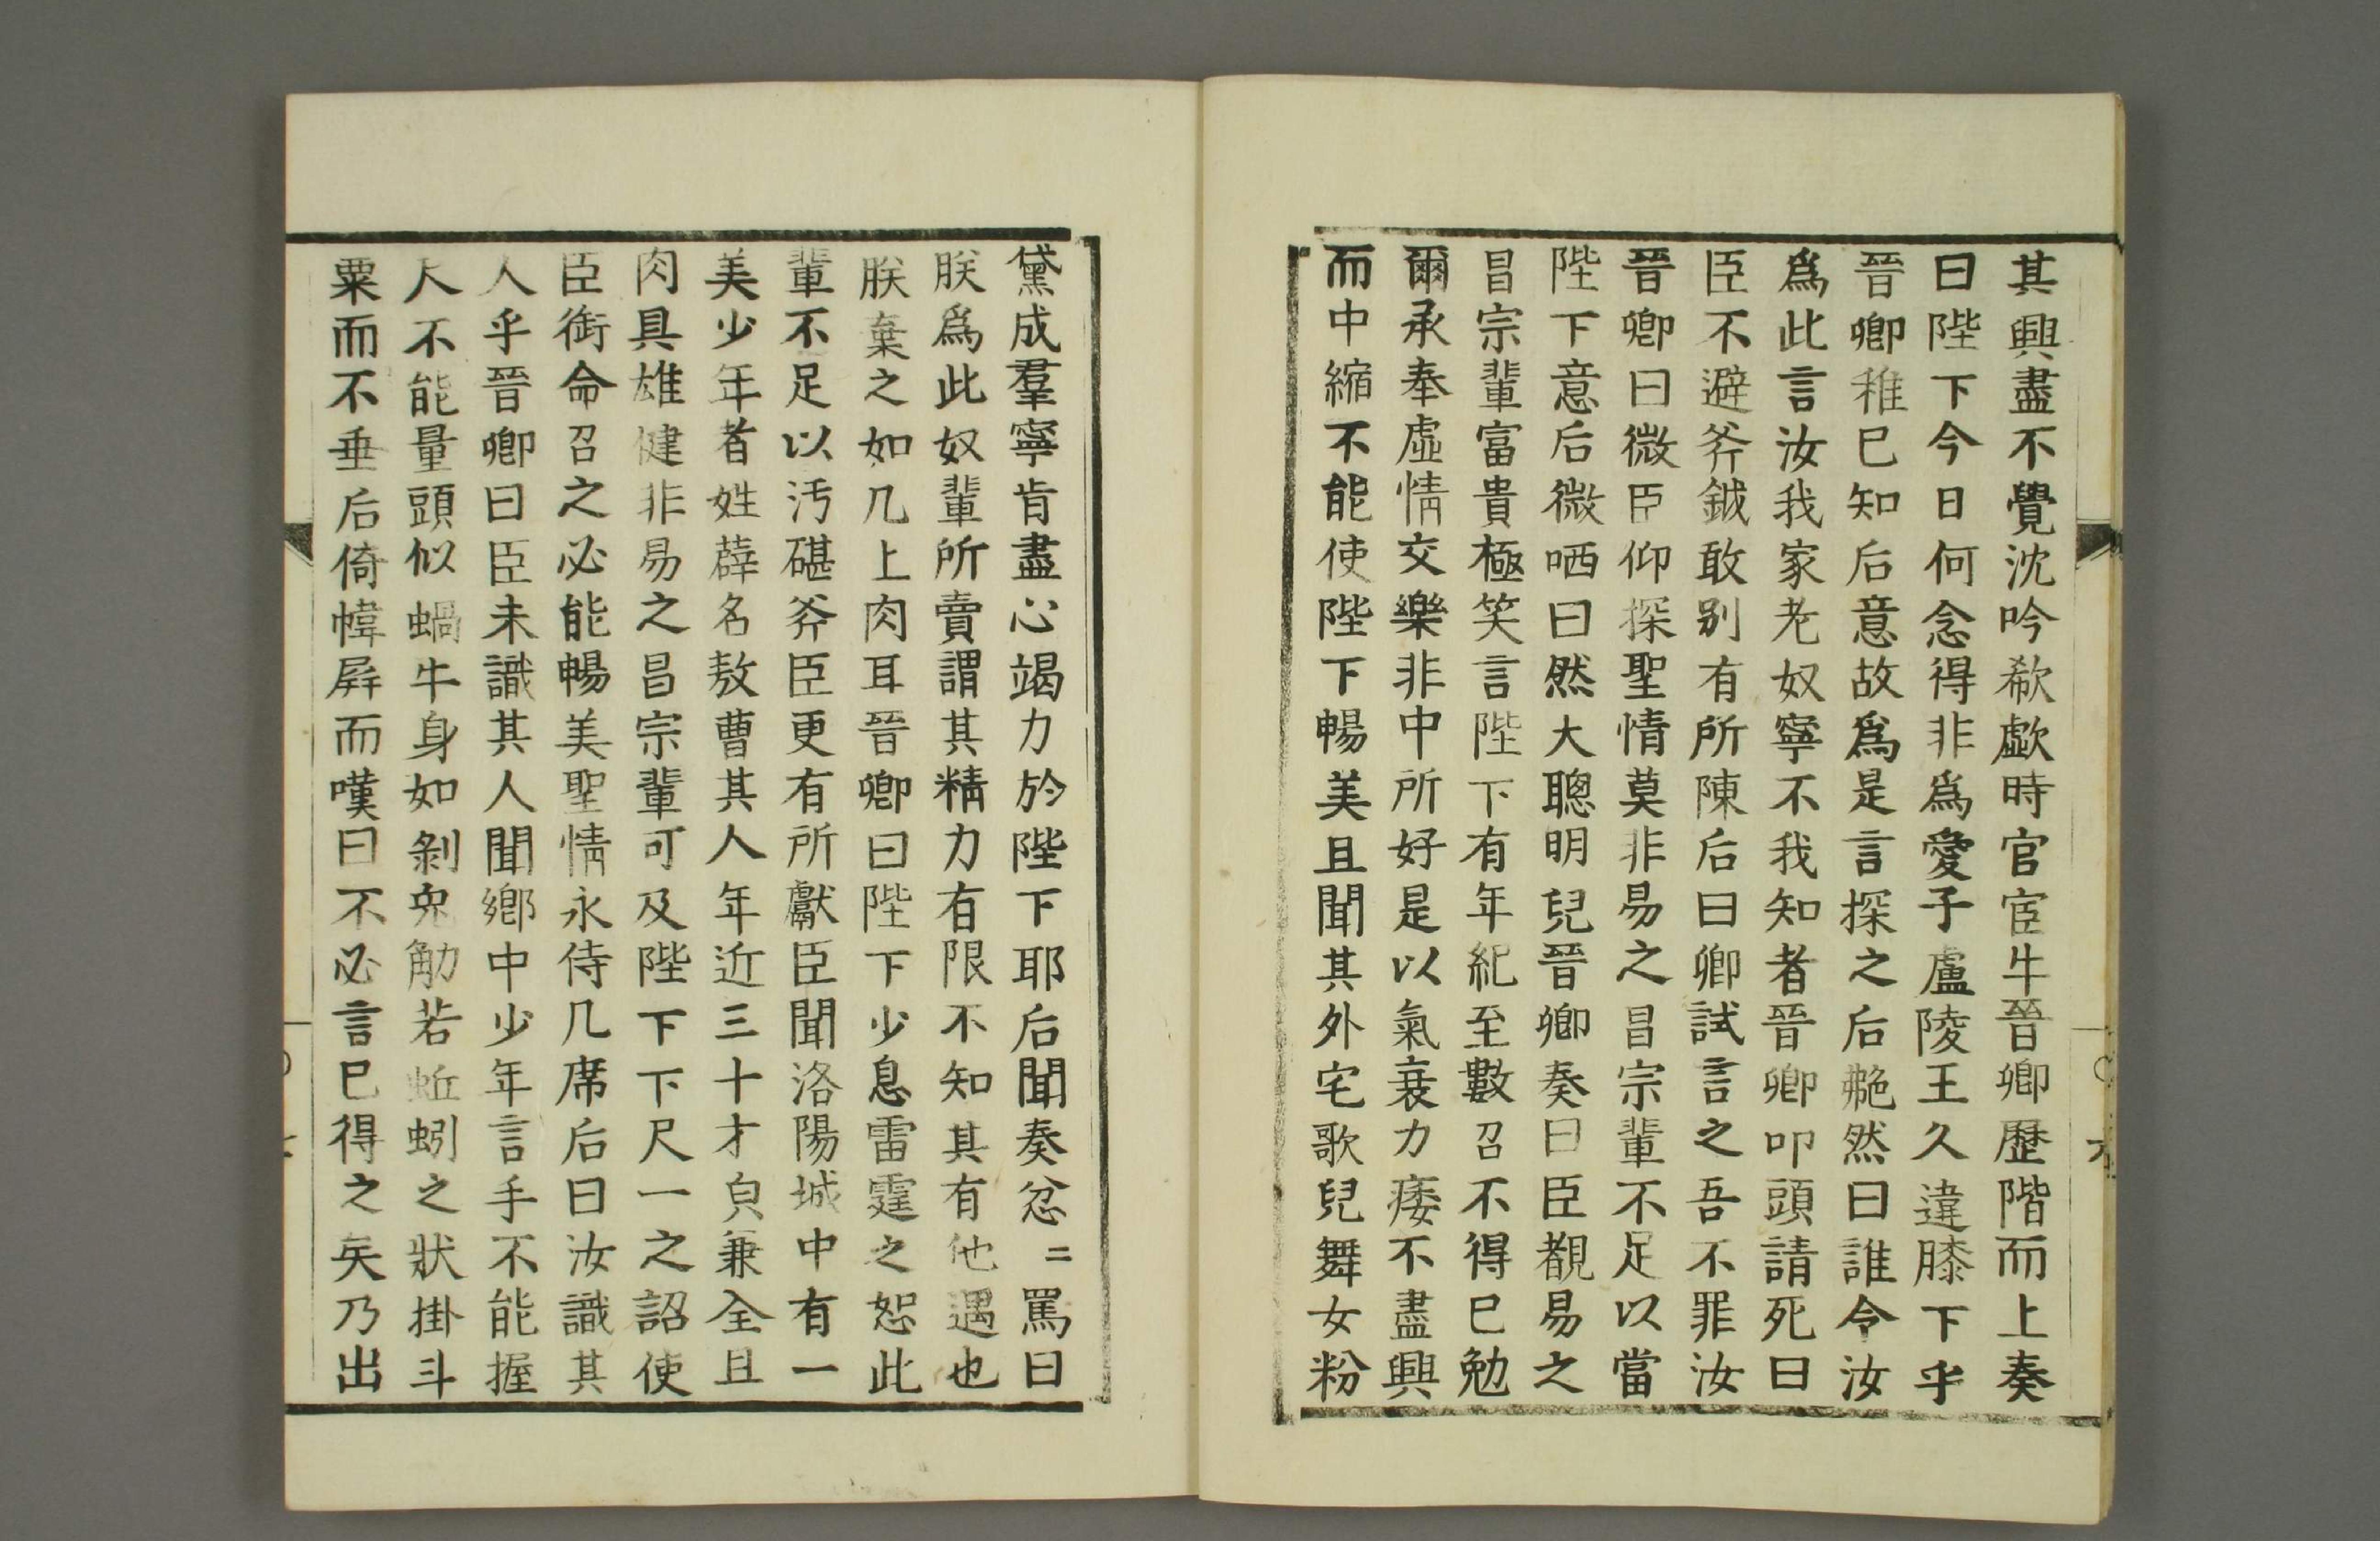 其興盡不覺沈吟欷歔時官宦牛晉卿歷階而上奏
曰陛下今日何念得非爲愛子盧陵王久違膝下乎
晉卿稚已知后意故爲是言探之后艴然曰誰令汝
爲此言汝我家老奴寧不我知者晉卿叩頭請死曰
臣不避斧鉞敢别有所陳后曰卿試言之吾不罪汝
晉卿曰微臣仰探聖情莫非易之昌宗輩不足以當
陛下意后微哂曰然大聰明兒晉卿奏曰臣覩易之
昌宗輩富貴極笑言陛下有年紀至數召不得已勉
爾承奉虛情交樂非中所好是以氣衰力痿不盡興
而中縮不能使陛下暢美且聞其外宅歌兒舞女粉
黛成羣寧肯盡心竭力於陛下耶后聞奏忿〻罵曰
朕爲此奴輩所賣謂其精力有限不知其有他遇也
朕棄之如几上肉耳晉卿曰陛下少息雷霆之恕此
輩不足以汚碪斧臣更有所獻臣聞洛陽城中有一
美少年者姓薛名敖曹其人年近三十才㒵兼全且
肉具雄健非易之昌宗輩可及陛下下尺一之詔使
臣銜命召之必能暢美聖情永侍几席后曰汝識其
人乎晉卿曰臣未識其人聞鄉中少年言手不能握
尺不能量頭似蝸牛身如剝兔觔若蚯蚓之狀掛斗
粟而不垂后倚幃屏而嘆曰不必言已得之矣乃出